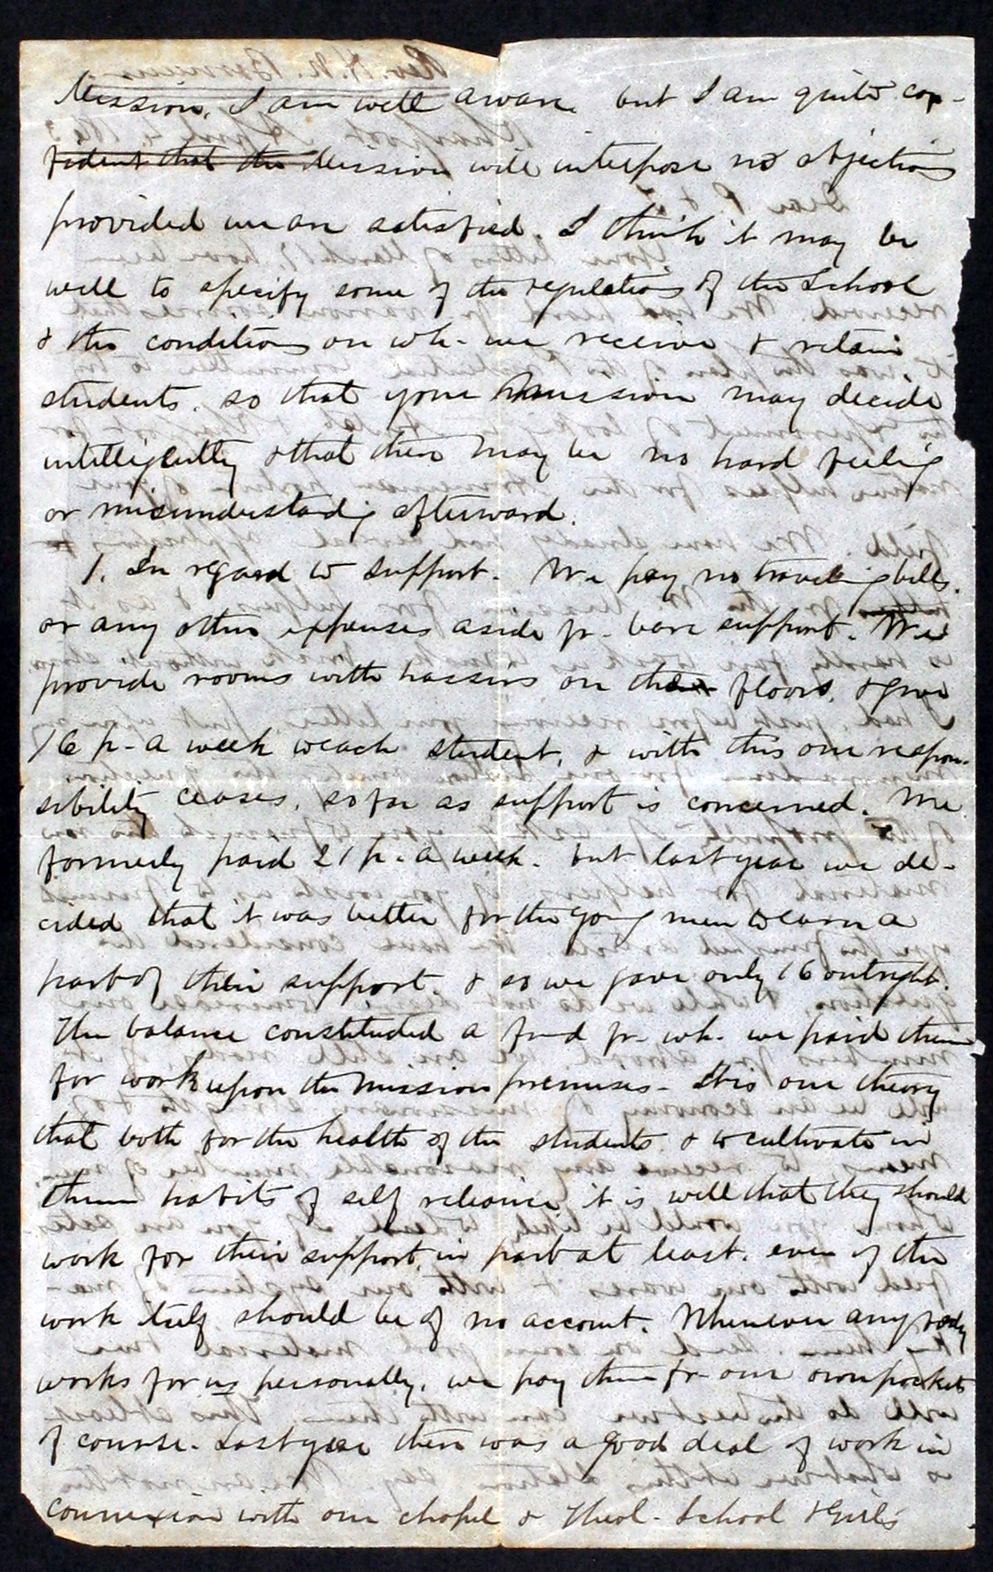 Mission, I am well aware, but I am quite con-
fident that the Mission will interpose no objections
provided we are satisfied. I think it may be
well to specify some of the regulations of the School
& the conditions on wh- we receive & retain
students, so that your mission may decide
intelligently & that there may be no hard feeling
or misunderstanding afterward.
1. In regard to support. We pay no traveling bills,
or any other expenses aside fr- bare support. We
provide rooms with hassirs on the floors, & give
16 p- a week to each student, & with this our respon-
sibility ceases, so far as support is concerned. We
formerly paid 21 p- a week- but last year we de-
cided that it was better for the young men to earn a
part of their support, & so we gave only 16 outright.
The balance constituted a fund fr- wh- we paid them
for work upon the Mission premises- It is our theory
that both for the health of the students & to cultivate in
them habits of self reliance it is well that they should
work for their support, in part at least, even if the
work itself should be of no account. Whenever any body
works for us personally, we pay them fr- our own pockets
of course- Last year there was a good deal of work in
connexion with our chapel & Theol- School & Girls